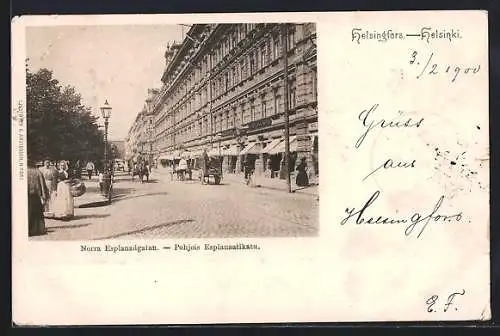 Helsingfors.—Helsinki.
3./2 1900
Gruss
aus
Helsingfors.
Norra Esplanadgatan. — Pohjois Esplanaatikatu.
E. F.